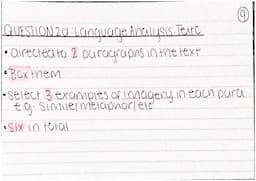 9
QUESTION 2a: Language Analysis: Text C
• Directed to 2 paragraphs in the text
• Box them
• select 3 examples of imagery in each para
e.g. simile/metaphor/etc
• six in total